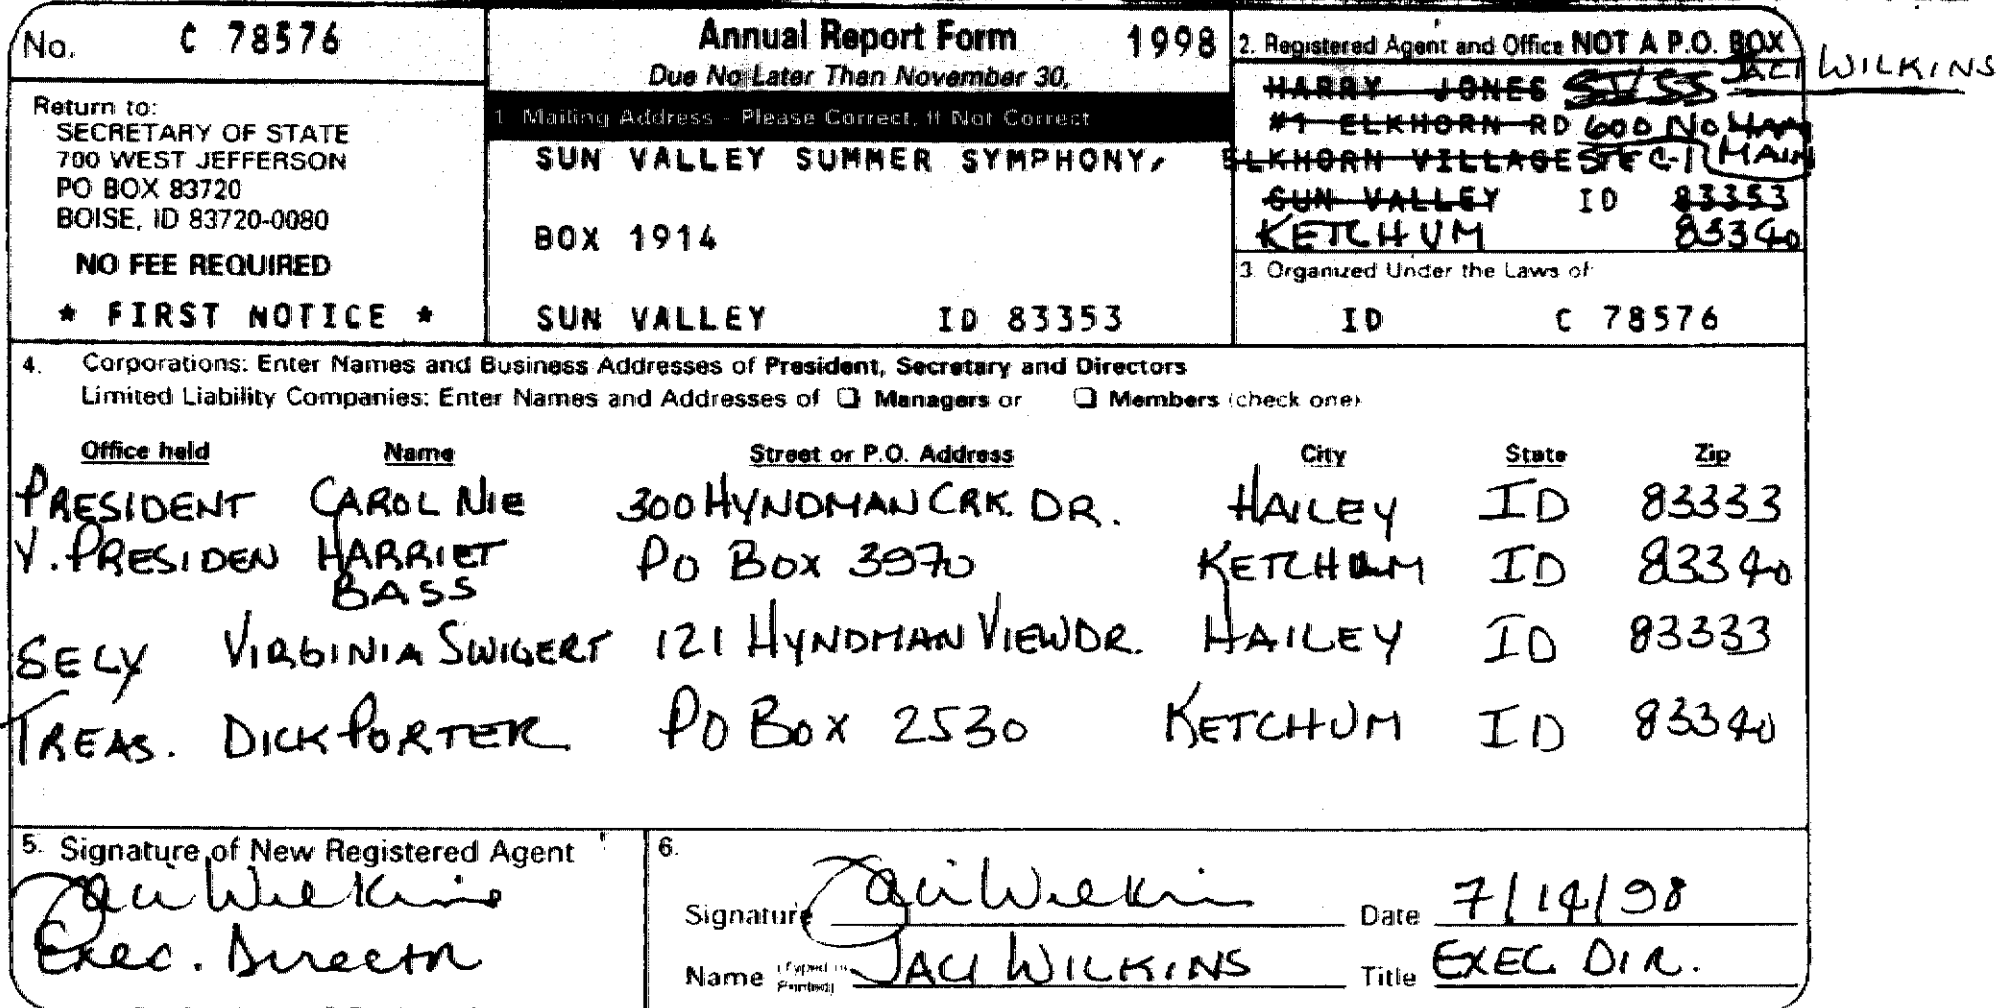 No. C 78576
Annual Report Form 1998
Due No Later Than November 30,
2. Registered Agent and Office NOT A P.O. BOX
Return to:
SECRETARY OF STATE
700 WEST JEFFERSON
PO BOX 83720
BOISE, ID 83720-0080
NO FEE REQUIRED
* FIRST NOTICE *
1 Mailing Address - Please Correct, If Not Correct
SUN VALLEY SUMMER SYMPHONY,
BOX 1914
SUN VALLEY ID 83353
HARRY JONES JACI WILKINS
#1 ELKHORN RD 600 No
ELKHORN VILLAGE STE C-1 MAIN
SUN VALLEY ID 83353
KETCHUM 83340
3 Organized Under the Laws of
ID C 78576
4. Corporations: Enter Names and Business Addresses of President, Secretary and Directors
Limited Liability Companies: Enter Names and Addresses of ❑ Managers or ❑ Members (check one)
Office held Name Street or P.O. Address City State Zip
PRESIDENT CAROL NIE 300 HYNDMAN CRK. DR. HAILEY ID 83333
V. PRESIDEN HARRIET PO BOX 3970 KETCHUM ID 83340
BASS
SECY VIRGINIA SWIGERT 121 HYNDMAN VIEW DR. HAILEY ID 83333
TREAS. DICK PORTER PO BOX 2530 KETCHUM ID 83340
5. Signature of New Registered Agent
Jaci Wilkins
Exec. Director
6.
Signature Jaci Wilkins Date 7/14/98
Name (Typed or Printed) JACI WILKINS Title EXEC. DIR.